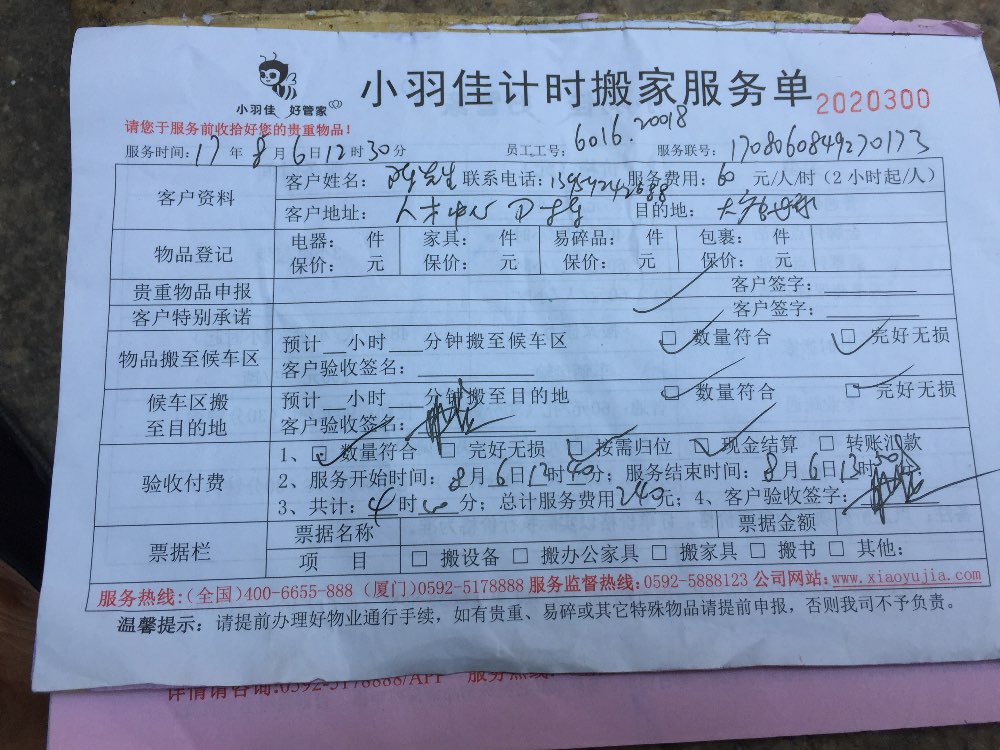 小羽佳 好管家
小羽佳计时搬家服务单 2020300
请您于服务前收拾好您的贵重物品!
服务时间: 17 年 8 月 6 日 12 时 30 分 员工工号: 6016.20018 服务联号: 1708060849270173
客户资料 客户姓名: 先生 联系电话: 服务费用: 60 元/人/时(2小时起/人)
客户地址: 人才中心 目的地:
物品登记 电器: 件 家具: 件 易碎品: 件 包裹: 件
保价: 元 保价: 元 保价: 元 保价: 元
贵重物品申报 客户签字:
客户特别承诺 客户签字:
物品搬至候车区 预计__小时___分钟搬至候车区 □ 数量符合 □ 完好无损
客户验收签名:
候车区搬至目的地 预计__小时___分钟搬至目的地 □ 数量符合 □ 完好无损
客户验收签名:
验收付费 1、□ 数量符合 □ 完好无损 □ 按需归位 □ 现金结算 □ 转账汇款
2、服务开始时间: 8 月 6 日 12 时 40 分; 服务结束时间: 8 月 6 日 13 时
3、共计: 4 时 分; 总计服务费用 240 元; 4、客户验收签字:
票据栏 票据名称 票据金额
项 目 □ 搬设备 □ 搬办公家具 □ 搬家具 □ 搬书 □ 其他:
服务热线:(全国)400-6655-888 (厦门)0592-5178888 服务监督热线:0592-5888123 公司网站:www.xiaoyujia.com
温馨提示: 请提前办理好物业通行手续, 如有贵重、易碎或其它特殊物品请提前申报, 否则我司不予负责。
详情请咨询:0592-5178888/APP 服务热线: